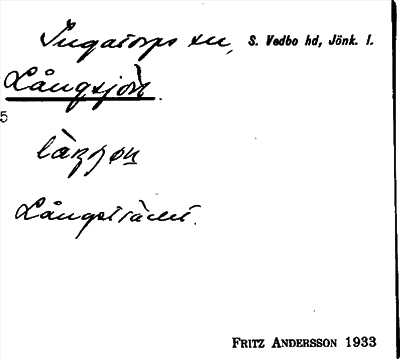 Ingatorps sn, S. Vedbo hd, Jönk. l.
Långsjön.
5
Långsträckt.
FRITZ ANDERSSON 1933